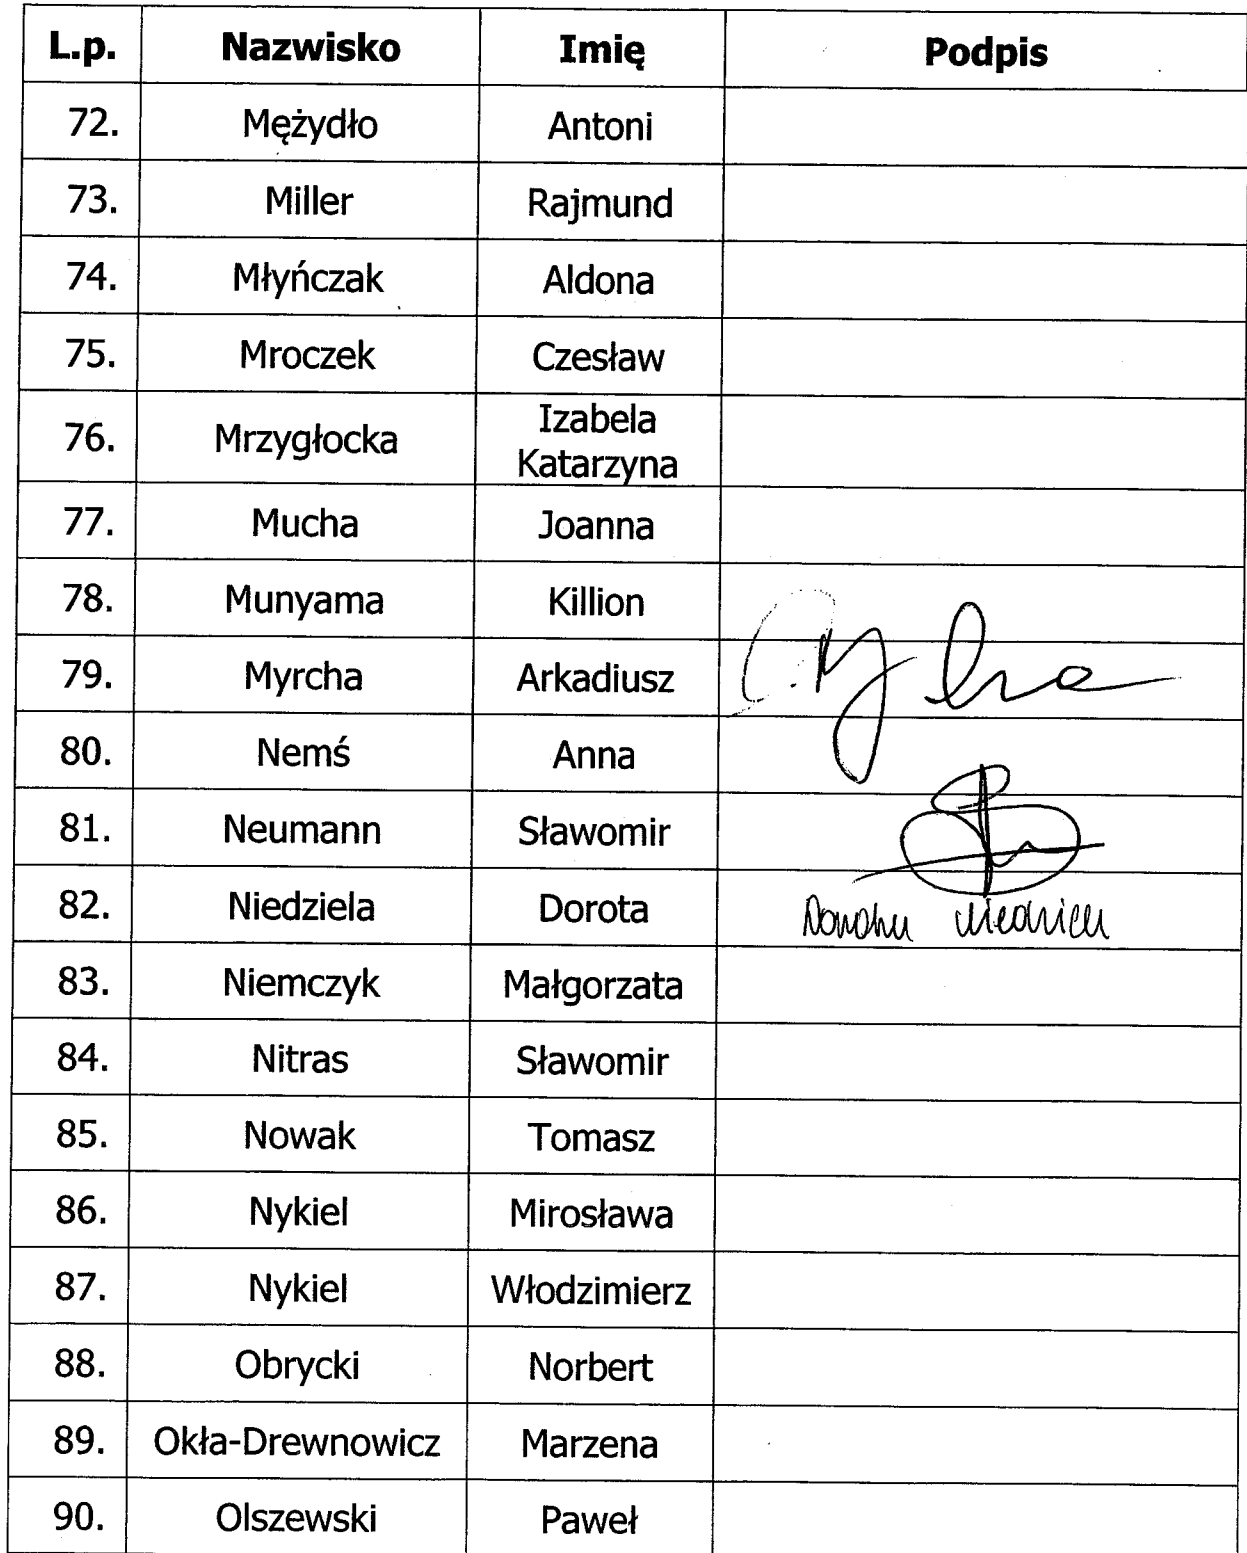 L.p. Nazwisko Imię Podpis
72. Mężydło Antoni
73. Miller Rajmund
74. Młyńczak Aldona
75. Mroczek Czesław
76. Mrzygłocka Izabela
Katarzyna
77. Mucha Joanna
78. Munyama Killion
79. Myrcha Arkadiusz
80. Nemś Anna
81. Neumann Sławomir
82. Niedziela Dorota
83. Niemczyk Małgorzata
84. Nitras Sławomir
85. Nowak Tomasz
86. Nykiel Mirosława
87. Nykiel Włodzimierz
88. Obrycki Norbert
89. Okła-Drewnowicz Marzena
90. Olszewski Paweł